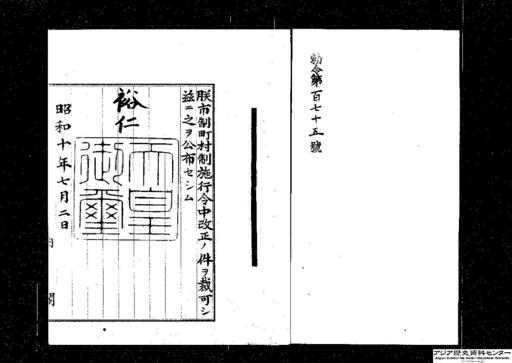 勅令第百七十五號
朕市制町村制施行令中改正ノ件ヲ裁可シ
茲ニ之ヲ公布セシム
裕仁
天皇御璽
昭和十年七月二日
内閣
アジア歴史資料センター
Japan Center for Asian Historical Records